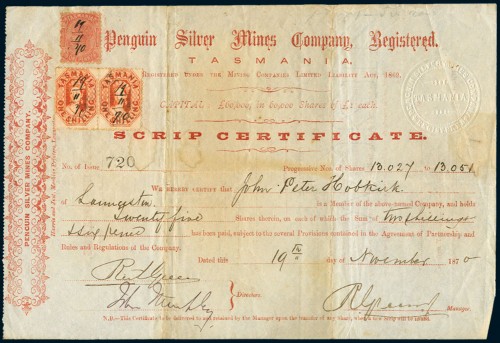 Penguin Silver Mines Company, Registered.
TASMANIA.
REGISTERED UNDER THE MINING COMPANIES LIMITED LIABILITY ACT, 1869.
CAPITAL £60,000, in 60,000 Shares of £1 each.
SCRIP CERTIFICATE.
No. of Issue 720 Progressive No. of Shares 13.027 to 13.051
WE HEREBY CERTIFY that John Peter Hobkirk
of Launceston is a Member of the above-named Company, and holds
twenty five Shares therein, on each of which the Sum of two shillings
& six pence has been paid, subject to the several Provisions contained in the Agreement of Partnership and
Rules and Regulations of the Company.
Dated this 19th day of November 1870
John Murphy
Directors.
Manager.
N.B.—This Certificate to be delivered to and retained by the Manager upon the transfer of any Share, when a new scrip will be issued.
PENGUIN SILVER MINES COMPANY.
TASMANIA
ONE SHILLING
19
11
70
TASMANIA
ONE SHILLING
19
11
70
19
11
70
TASMANIA